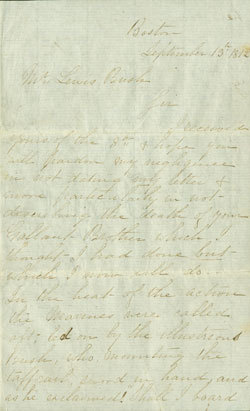 Boston
September 13th 1812
Mr Lewis Bush
Sir
I received
yours of the 8th & hope you
will pardon my negligence
in not dating my letter &
more particularly in not
describing the death of your
Gallant Brother which I
thought I had done but
which I now will do.
In the heat of the action
the Marines were called
aft, led on by the illustrious
Bush, who mounting the
Taffrail, sword in hand, and
as he exclaimed! "Shall I board